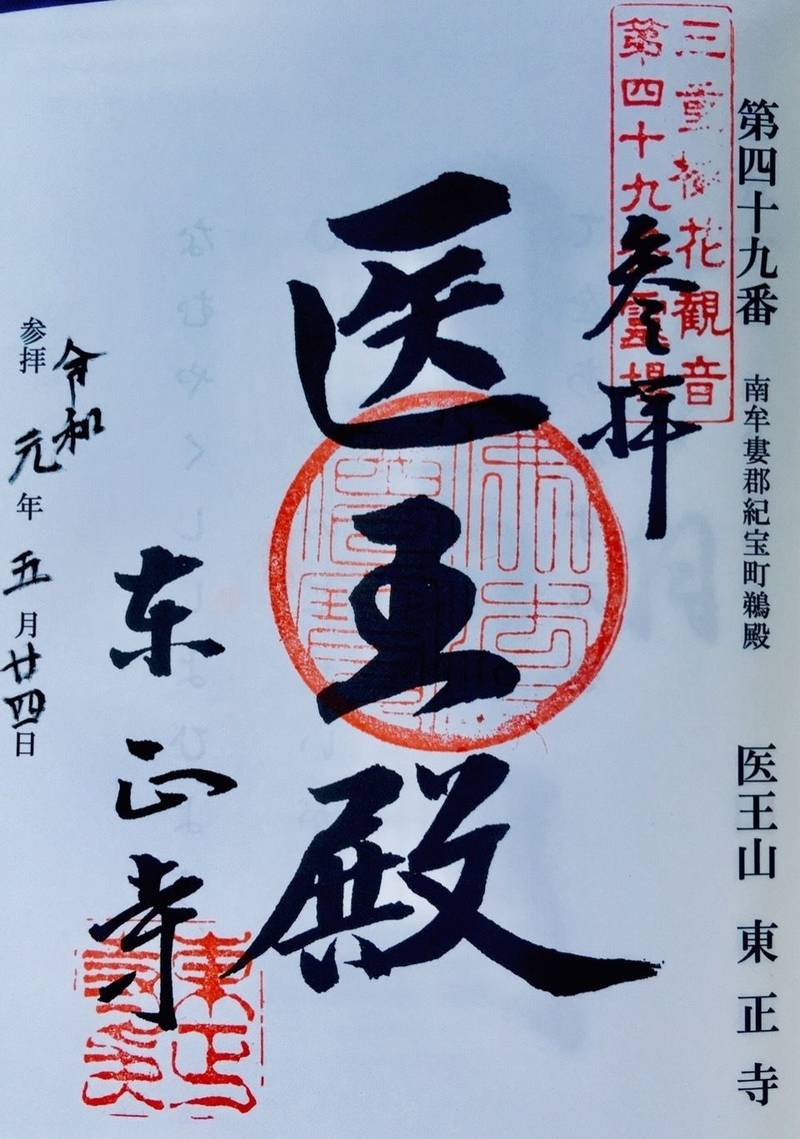 第四十九番 南牟婁郡紀宝町鵜殿 医王山 東正寺
三重梅花觀音
第四十九番靈場
参拝
医王殿
佛法僧寶
东正寺
参拝 令和元年五月廿四日